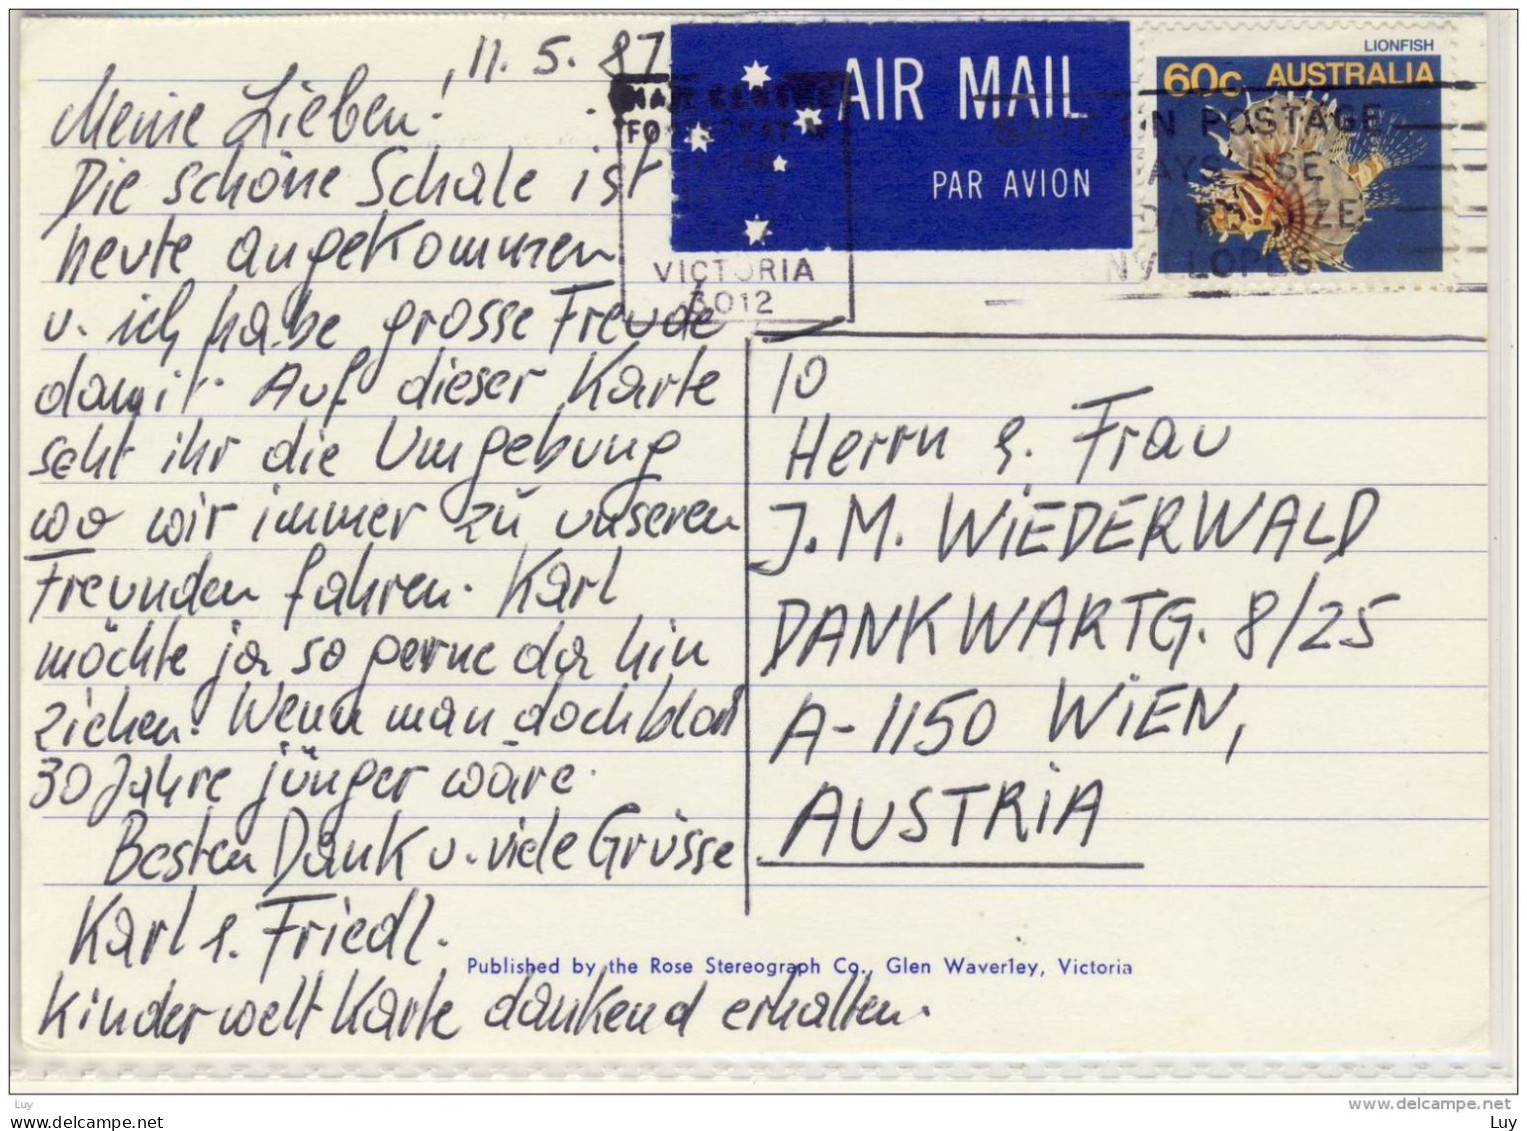 11. 5. 87
Meine Lieben!
Die schöne Schale ist
heute angekommen
u. ich habe grosse Freude
damit. Auf dieser Karte
seht ihr die Umgebung
wo wir immer zu unseren
Freunden fahren. Karl
möchte ja so gerne da hin
ziehen. Wenn man doch bloß
30 Jahre jünger wäre.
Besten Dank u. viele Grüsse
Karl u. Friedl.
Kinderwelt Karte dankend erhalten.
AIR MAIL
PAR AVION
LIONFISH
60c AUSTRALIA
MAIL CENTRE
VICTORIA
3012
ON POSTAGE
USE
10
Herrn u. Frau
J. M. WIEDERWALD
DANKWARTG. 8/25
A-1150 WIEN,
AUSTRIA
Published by the Rose Stereograph Co., Glen Waverley, Victoria
Luy
www.delcampe.net
https://www.delcampe.net/store/luy
Luy